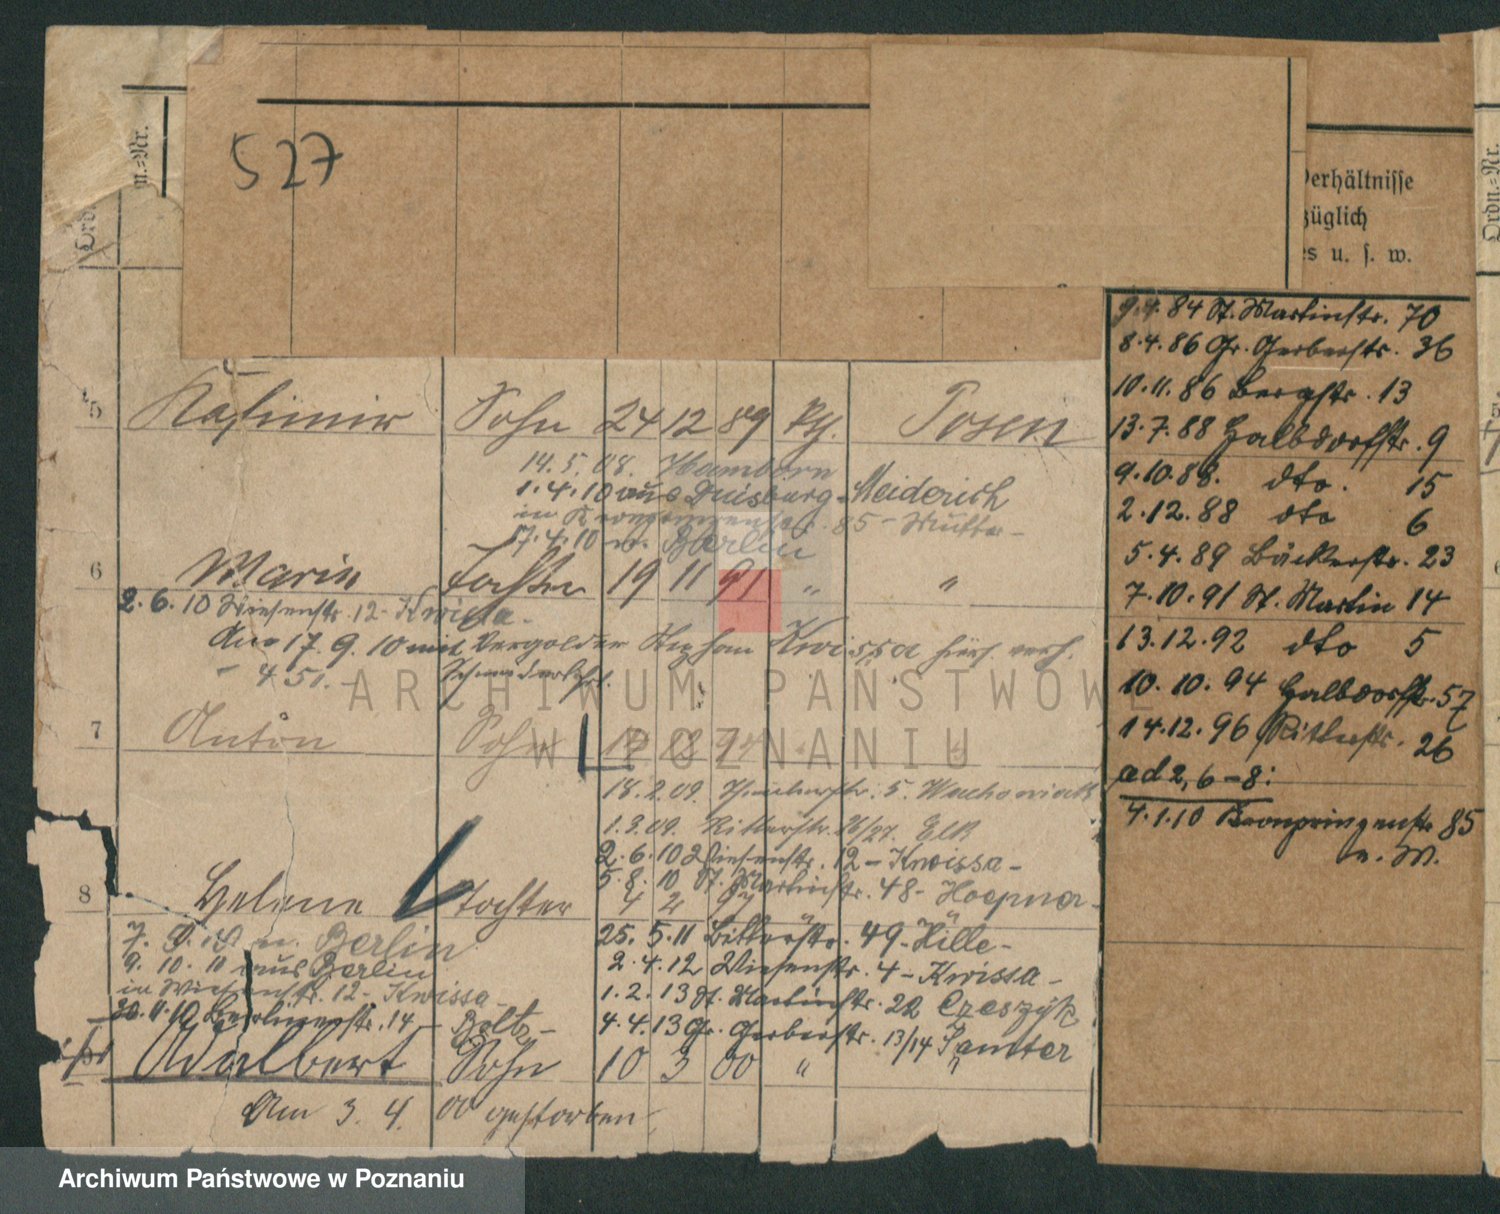 527
Ordn.-Nr.
n.-Nr.
Verhältnisse
züglich
es u. s. w.
Ordn.-Nr.
5 Kasimir Sohn 24 12 89 kth. Posen
14.5.08. Hamborn
1.4.10 aus Duisburg-Meiderich
in Kronprinzenstr. 85 - Mutter -
17.4.10 n. Berlin
6 Marie Tochter 19 11 91 " "
2.6.10 Wiesenstr. 12 - Kwissa -
Am 17.9.10 mit Vergolder Stephan Kwissa hier verh.
- 451. -
7 Anton Sohn
18.2.09. 5. Wachowiak
1.3.09. Ritterstr. 26/27.
2.6.10 Wiesenstr. 12 - Kwissa -
5.8.10 St. Martinstr. 48 - Hoepner -
8 Helene Tochter 4 2 97
7. n. Berlin
25.5.11 Bitterstr. 49 - Hille -
9.10.11 aus Berlin
2.4.12 Wiesenstr. 4 - Kwissa -
in Wiesenstr. 12 - Kwissa -
1.2.13 St. Martinstr. 22 Czeszyk
Berlinerstr. 14 - Beltz -
4.4.13 Gr. Gerberstr. 13/14 Jamter
Adalbert Sohn 10 3 00 " "
Am 3. 4. 00 gestorben
9.4.84 St. Martinstr. 70
8.4.86 Gr. Gerberstr. 36
10.11.86 Bergstr. 13
13.7.88 Halbdorfstr. 9
9.10.88. dto. 15
2.12.88 dto 6
5.4.89 Bäckerstr. 23
7.10.91 St. Martin 14
13.12.92 dto 5
10.10.94 Halbdorfstr. 57
14.12.96 Ritterstr. 26
ad 2, 6-8:
4.1.10 Kronprinzenstr. 85
ARCHIWUM PAŃSTWOWE
W POZNANIU
Archiwum Państwowe w Poznaniu